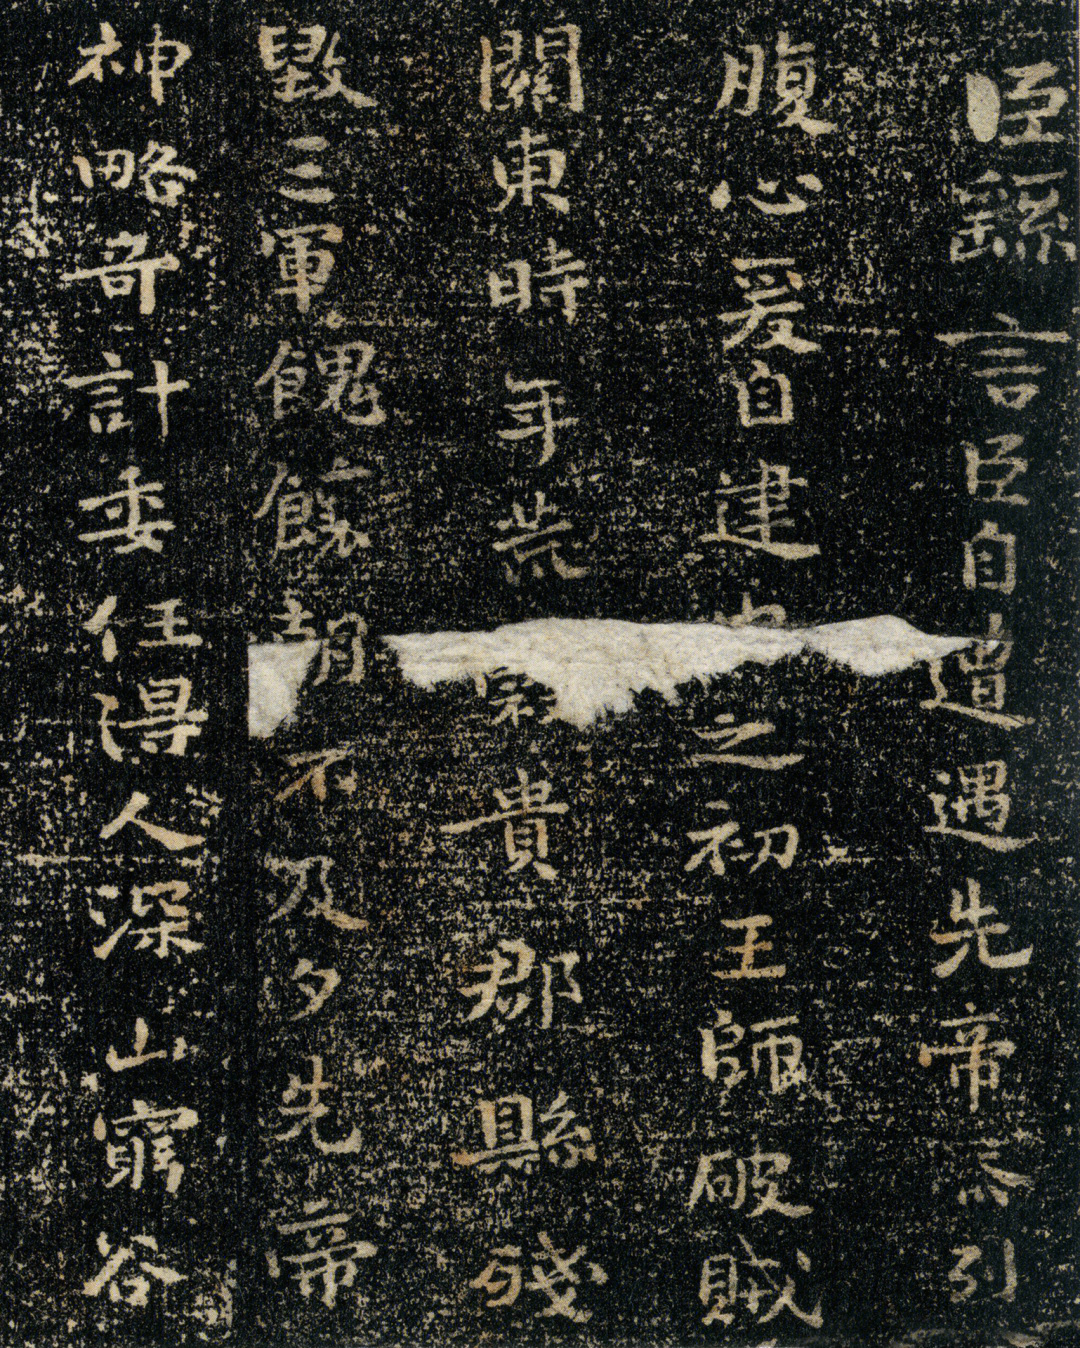 臣繇言臣自遭遇先帝忝列
腹心爰自建之初王師破賊
關東時年荒穀貴郡縣殘
毀三軍餽饟朝不及夕先帝
神略奇計委任得人深山窮谷